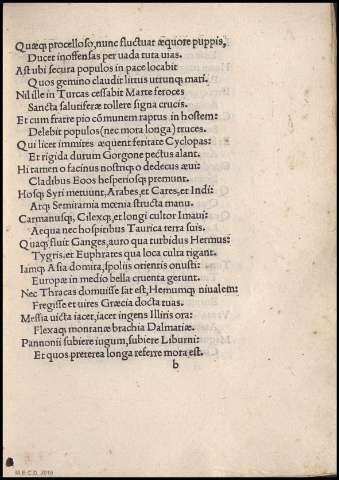 Quæq; procelloso, nunc fluctuat æquore puppis,
Ducet inoffensas per uada tuta uias.
Ast ubi secura populos in pace locabit
Quos gemino claudit littus utrunq; mari.
Nil ille in Turcas cessabit Marte feroces
Sancta salutiferæ tollere signa crucis.
Et cum fratre pio cōmunem raptus in hostem:
Delebit populos (nec mora longa) truces.
Qui licet immites æquent feritate Cyclopas:
Et rigida durum Gorgone pectus alant.
Hi tamen o facinus nostriq; o dedecus æui:
Cladibus Eoos hesperiosq; premunt.
Hosq; Syri metuunt, Arabes, et Cares, et Indi:
Atq; Semiramia mœnia structa manu.
Carmanusq;, Cilexq;, et longi cultor Imaui:
Aequa nec hospitibus Taurica terra suis.
Quaq; fluit Ganges, auro qua turbidus Hermus:
Tygris, et Euphrates qua loca culta rigant.
Iamq; Asia domita, spoliis orientis onusti:
Europæ in medio bella cruenta gerunt.
Nec Thracas domuisse sat est, Hemumq; niualem:
Fregisse et uires Græcia docta tuas.
Messia uicta iacet, iacet ingens Illiris ora:
Flexaq; montanæ brachia Dalmatiæ.
Pannonii subiere iugum, subiere Liburni:
Et quos preterea longa referre mora est.
b
M.E.C.D. 2015